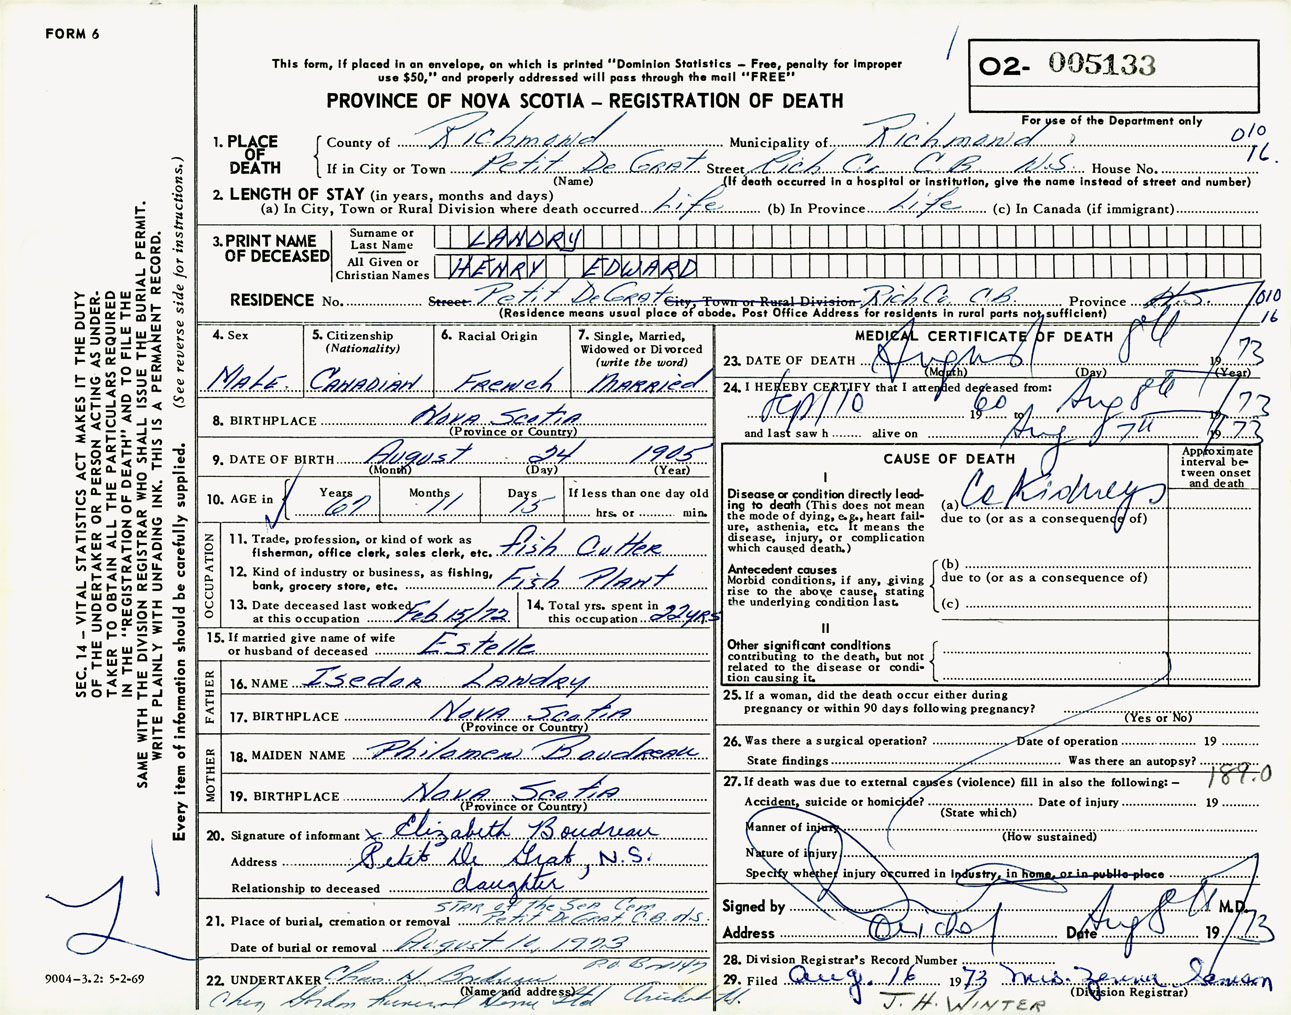 FORM 6
This form, if placed in an envelope, on which is printed "Dominion Statistics – Free, penalty for improper
use $50," and properly addressed will pass through the mail "FREE"
O2- 005133
PROVINCE OF NOVA SCOTIA – REGISTRATION OF DEATH
For use of the Department only
1. PLACE OF DEATH
County of Richmond Municipality of Richmond 010
16.
If in City or Town Petit De Grat Street Rich Co. C.B. N.S. House No.
(Name) (If death occurred in a hospital or institution, give the name instead of street and number)
2. LENGTH OF STAY (in years, months and days)
(a) In City, Town or Rural Division where death occurred Life (b) In Province Life (c) In Canada (if immigrant)
3. PRINT NAME OF DECEASED
Surname or Last Name LANDRY
All Given or Christian Names HENRY EDWARD
RESIDENCE No. Street Petit De Grat City, Town or Rural Division Rich Co. C.B. Province N.S. 010
16
(Residence means usual place of abode. Post Office Address for residents in rural parts not sufficient)
4. Sex
Male.
5. Citizenship
(Nationality)
Canadian
6. Racial Origin
French
7. Single, Married,
Widowed or Divorced
(write the word)
Married
8. BIRTHPLACE Nova Scotia
(Province or Country)
9. DATE OF BIRTH August 24 1905
(Month) (Day) (Year)
10. AGE in
Years 67 Months 11 Days 15 If less than one day old
hrs. or min.
OCCUPATION
11. Trade, profession, or kind of work as
fisherman, office clerk, sales clerk, etc. Fish Cutter
12. Kind of industry or business, as fishing,
bank, grocery store, etc. Fish Plant
13. Date deceased last worked
at this occupation Feb. 15/72
14. Total yrs. spent in
this occupation 22 yrs
15. If married give name of wife
or husband of deceased Estelle
FATHER
16. NAME Isedor Landry
17. BIRTHPLACE Nova Scotia
(Province or Country)
MOTHER
18. MAIDEN NAME Philomen Boudreau
19. BIRTHPLACE Nova Scotia
(Province or Country)
20. Signature of informant x Elizabeth Boudreau
Address Petit De Grat, N.S.
Relationship to deceased daughter
21. Place of burial, cremation or removal Star of the Sea Cem
Petit De Grat C.B. N.S.
Date of burial or removal August 10, 1973
22. UNDERTAKER Chas. H. Boudreau
(Name and address)
Gordon Funeral Home Ltd Arichat N.S.
MEDICAL CERTIFICATE OF DEATH
23. DATE OF DEATH August 8th 1973
(Month) (Day) (Year)
24. I HEREBY CERTIFY that I attended deceased from:
Sept 10 1960 to Aug 8th 1973
and last saw h alive on Aug 8th 1973
CAUSE OF DEATH
Approximate interval between onset and death
I
Disease or condition directly leading to death (This does not mean the mode of dying, e.g., heart failure, asthenia, etc. It means the disease, injury, or complication which caused death.)
(a) Ca Kidneys
due to (or as a consequence of)
Antecedent causes
Morbid conditions, if any, giving rise to the above cause, stating the underlying condition last.
(b)
due to (or as a consequence of)
(c)
II
Other significant conditions
contributing to the death, but not related to the disease or condition causing it.
25. If a woman, did the death occur either during
pregnancy or within 90 days following pregnancy?
(Yes or No)
26. Was there a surgical operation? Date of operation 19
State findings Was there an autopsy?
189.0
27. If death was due to external causes (violence) fill in also the following: –
Accident, suicide or homicide? Date of injury 19
(State which)
Manner of injury
(How sustained)
Nature of injury
Specify whether injury occurred in Industry, in home, or in public place
Signed by M.D.
Address Arichat Date Aug 8th 1973
28. Division Registrar's Record Number
29. Filed Aug. 16 1973 Mrs.
(Division Registrar)
J. H. WINTER
SEC. 14 – VITAL STATISTICS ACT MAKES IT THE DUTY
OF THE UNDERTAKER OR PERSON ACTING AS UNDER-
TAKER TO OBTAIN ALL THE PARTICULARS REQUIRED
IN THE "REGISTRATION OF DEATH" AND TO FILE THE
SAME WITH THE DIVISION REGISTRAR WHO SHALL ISSUE THE BURIAL PERMIT.
WRITE PLAINLY WITH UNFADING INK. THIS IS A PERMANENT RECORD.
Every item of information should be carefully supplied. (See reverse side for instructions.)
9004-3.2: 5-2-69